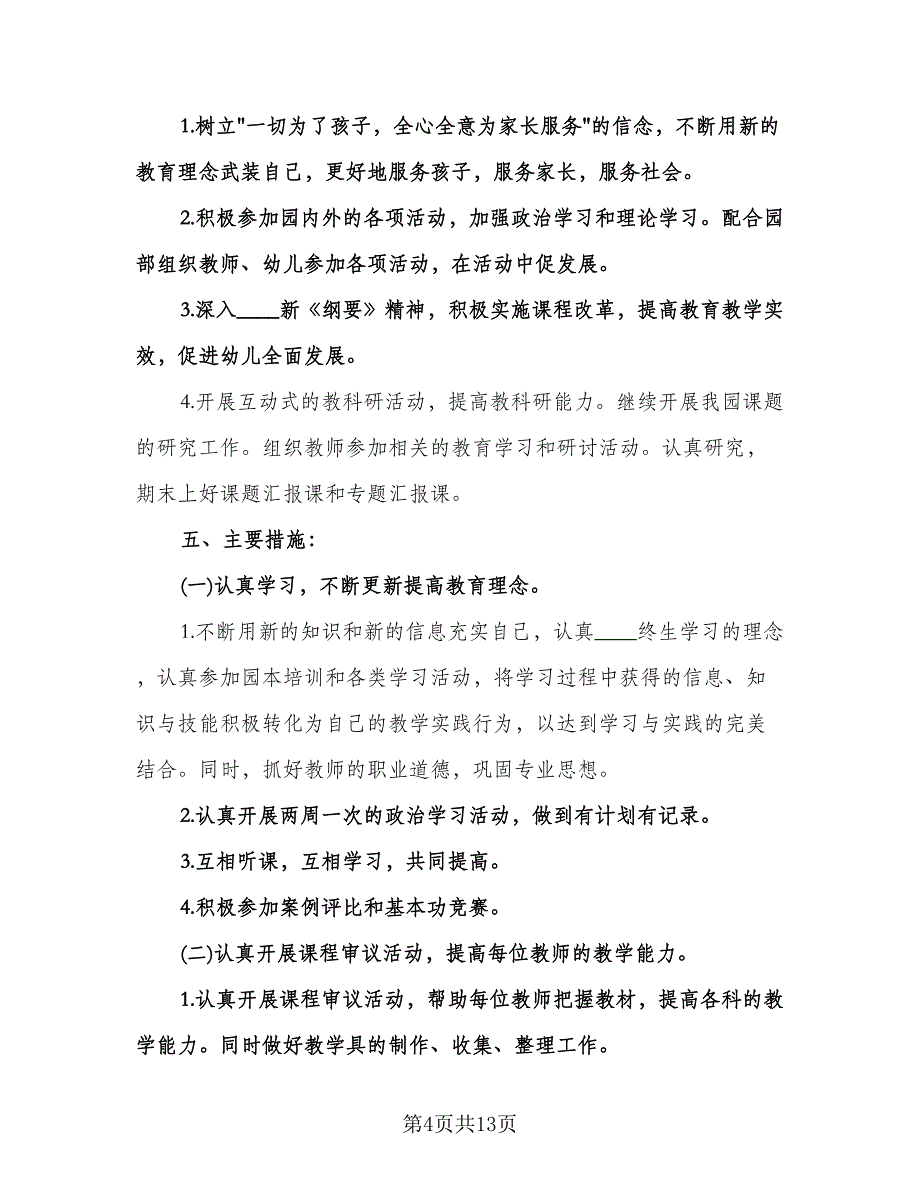 1.树立"一切为了孩子，全心全意为家长服务"的信念，不断用新的
教育理念武装自己，更好地服务孩子，服务家长，服务社会。
2.积极参加园内外的各项活动，加强政治学习和理论学习。配合园
部组织教师、幼儿参加各项活动，在活动中促发展。
3.深入____新《纲要》精神，积极实施课程改革，提高教育教学实
效，促进幼儿全面发展。
4.开展互动式的教科研活动，提高教科研能力。继续开展我园课题
的研究工作。组织教师参加相关的教育学习和研讨活动。认真研究，
期末上好课题汇报课和专题汇报课。
五、主要措施：
(一)认真学习，不断更新提高教育理念。
1.不断用新的知识和新的信息充实自己，认真____终生学习的理念
，认真参加园本培训和各类学习活动，将学习过程中获得的信息、知
识与技能积极转化为自己的教学实践行为，以达到学习与实践的完美
结合。同时，抓好教师的职业道德，巩固专业思想。
2.认真开展两周一次的政治学习活动，做到有计划有记录。
3.互相听课，互相学习，共同提高。
4.积极参加案例评比和基本功竞赛。
(二)认真开展课程审议活动，提高每位教师的教学能力。
1.认真开展课程审议活动，帮助每位教师把握教材，提高各科的教
学能力。同时做好教学具的制作、收集、整理工作。
第4页共13页